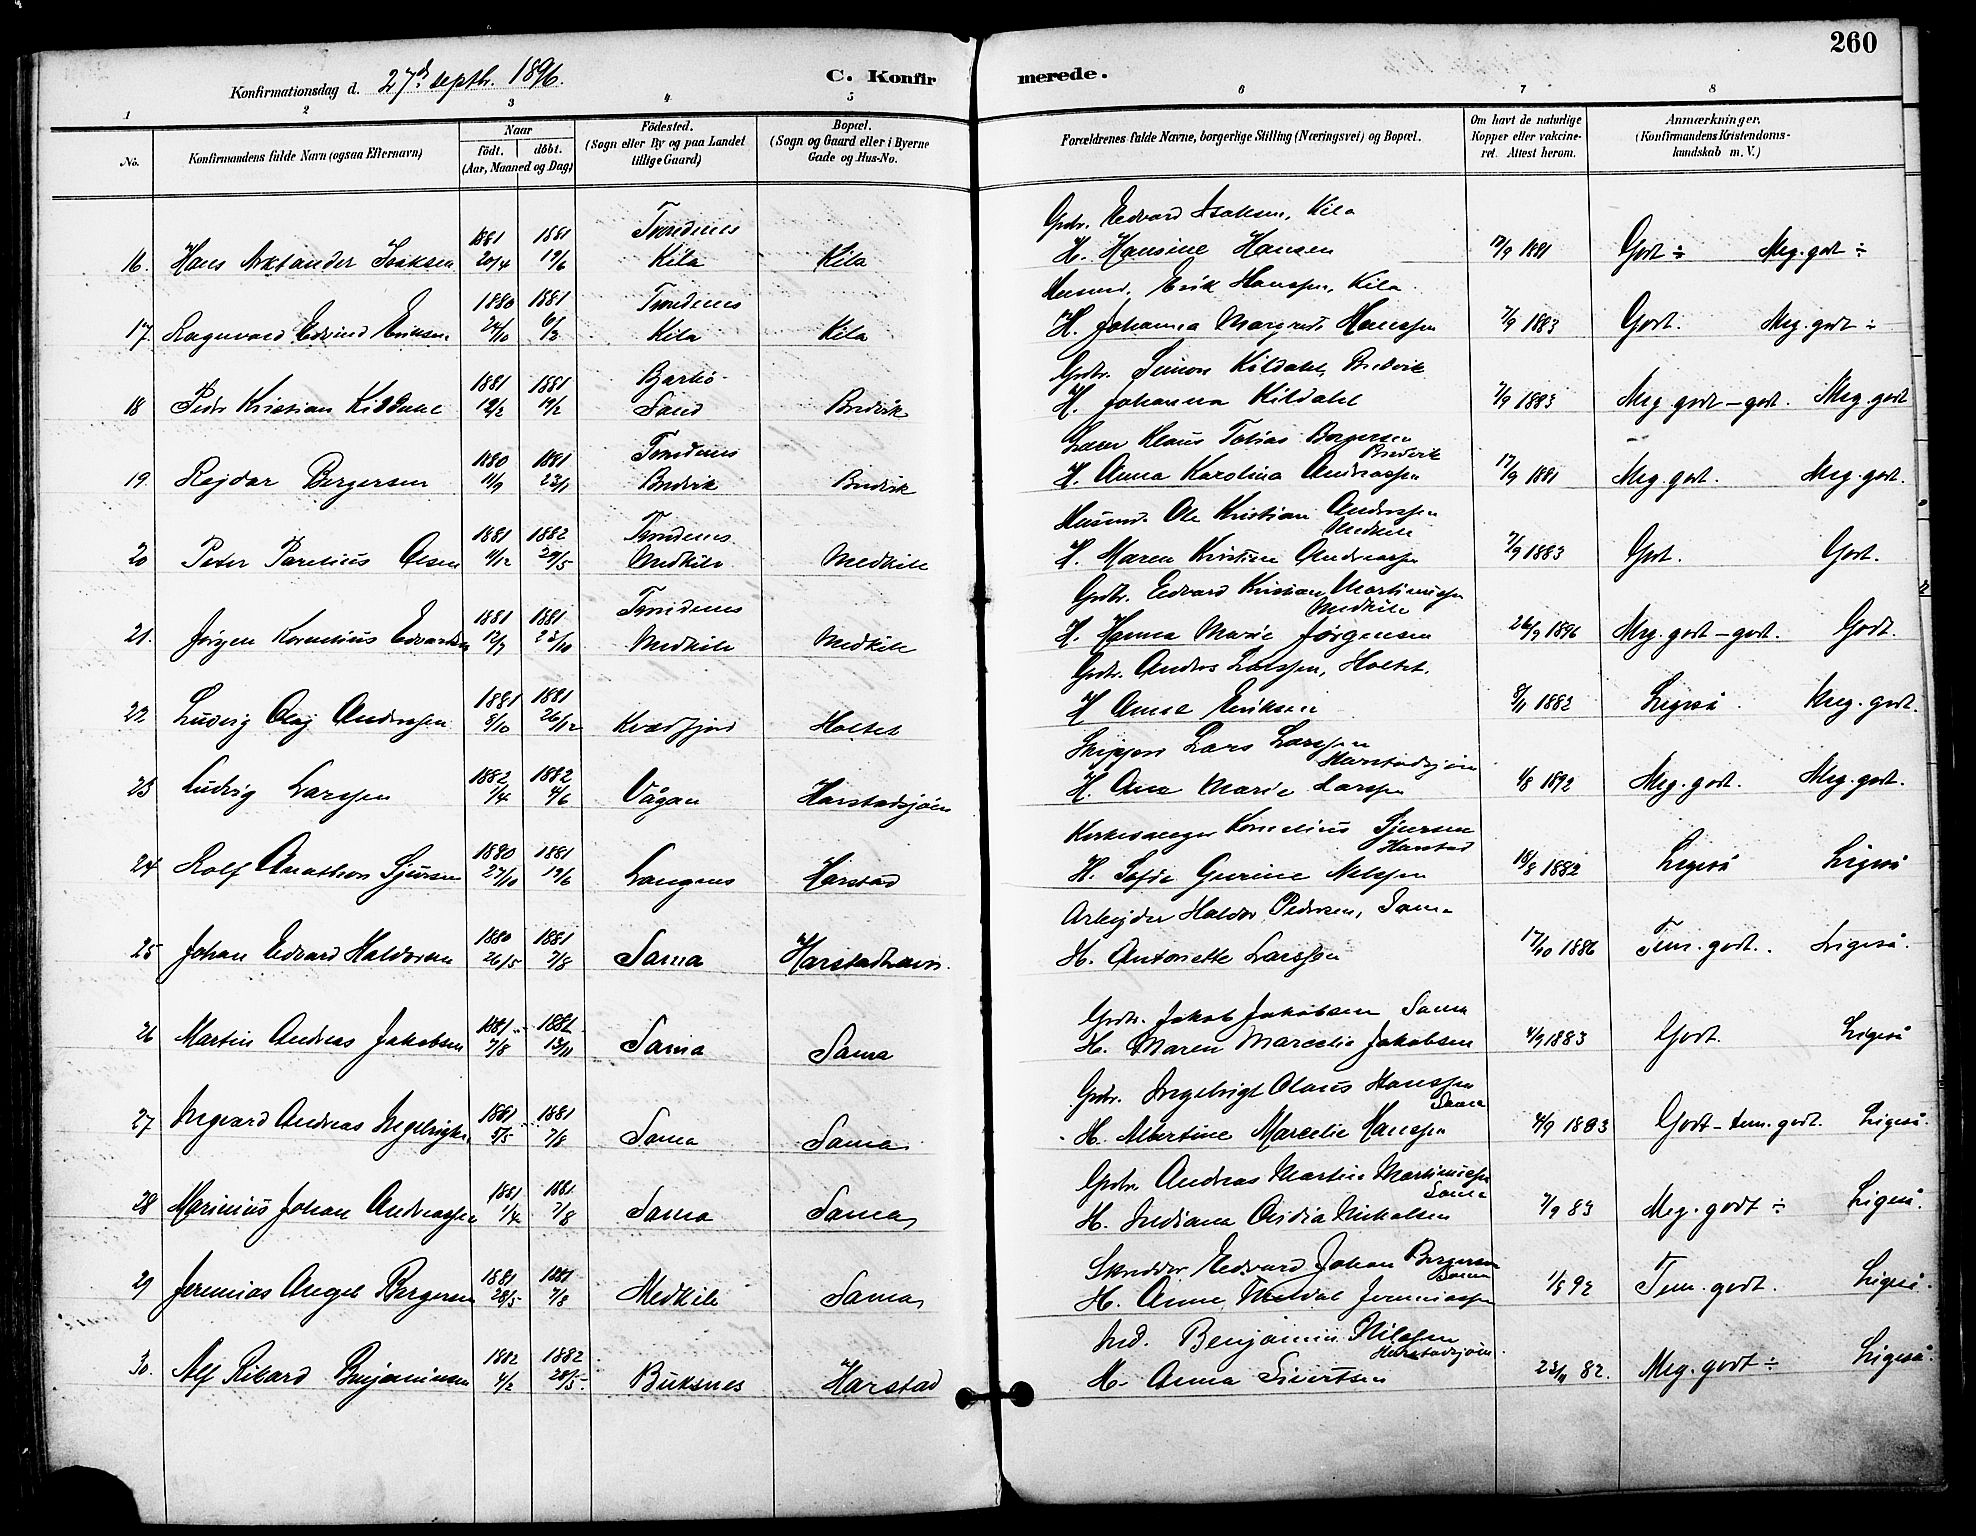 260
Konfirmationsdag d. 27de septbr. 1896.
C. Konfirmerede.
1 2 3 4 5 6 7 8
No.
Konfirmandens fulde Navn (ogsaa Efternavn)
Naar
födt. döbt.
(Aar, Maaned og Dag)
Födested.
(Sogn eller By og paa Landet
tillige Gaard)
Bopæl.
(Sogn og Gaard eller i Byerne
Gade og Hus-No.
Forældrenes fulde Navne, borgerlige Stilling (Næringsvei) og Bopæl.
Om havt de naturlige
Kopper eller vakcine-
ret. Attest herom.
Anmærkninger.
(Konfirmandens Kristendoms-
kundskab m. V.)
1881 1881 Trondenes Gbr. Edvard Isaksen, Kila
16. Hans Isaksen 20/4 19/6 Kila Kila H. Hansine Hansen 1881 Godt ÷ Meg. godt ÷
1880 1881 Trondenes Husmd. Erik Hanssen, Kila
17. Ragnvard Edvind Eriksen 24/10 6/2 Kila Kila H. Johanna Margrete Hanssen 7/9 1883 Godt. Meg. godt ÷
1881 1881 Bjarkö- Gbr. Simon Kildahl, Bredvik
18 Peder Kristian Kildahl 12/2 19/2 Sand Bredvik H. Johanna Kildahl 7/9 1883 Meg. godt - godt. Meg. godt
1880 1881 Trondenes Lærer Klaus Tobias Bergersen
Bredvik
19. Rejdar Bergersen 11/9 23/1 Bredvik Bredvik H. Anna Karolina Andreassen 17/9 1881 Meg. godt. Meg. godt.
1881 1882 Trondenes. Husmd. Ole Kristian Anderssen
Medkile
20 Peter Parelius Olsen 4/12 29/5 Medkile Medkile H. Maren Kristine Andreassen 7/9 1883 Godt. Godt.
1881 1881 Trondenes Gbr. Edvard Kristian Martinussen
Medkile
21. Jörgen Kornelius Edvardsen 12/9 23/10 Medkile Medkile H. Hanna Marie Jørgensen 26/9 1896 Meg. godt - godt. Godt.
1881 1881 Gbr. Anders Larssen, Holtet.
22 Ludvig Olaj Anderssen 8/10 26/12 Kvædfjord Holtet H. Anne Eriksen 8/11 1882 Ligeså Meg. godt.
1882 1882 Skipper Lars Larssen
Harstadsjøen
23 Ludvig Larssen 1/4 4/6 Vågan Harstadsjøen H. Ane Marie Larssen 1/8 1892 Meg. godt. Meg. godt.
1880 1881 Kirkesanger Kornelius Sjursen
Harstad
24 Rolf Anathon Sjursen 27/10 19/6 Langnes Harstad H. Sofie Gurine Nelssen 18/8 1882 Ligeså Ligeså
1880 1881 Arbejder Haldor Pedersen, Sama
25 Johan Edvard Haldorsen 26/5 7/8 Sama Harstadhavn. H. Antonette Larssen 17/10 1886 Tem. godt. Ligeså.
1881 1881 Gbr. Jakob Jakobsen Sama
26 Martin Andreas Jakobsen 7/8 13/11 Sama Sama H. Maren Marcelie Jakobsen 4/9 1883 Godt. Ligeså
1881 1881 Gbr. Ingebrigt Olaus Hanssen
Sama
27 Ingvard Andreas Ingebrigtsen 5/5 7/8 Sama Sama H. Albertine Marcelie Hanssen 4/9 1883 Godt - tem. godt. Ligeså.
1881 1881 Gbr. Andreas Martin Martinussen
Sama
28 Marinius Johan Andreassen 1/4 7/8 Sama Sama H. Indiana Nikolsen 7/9 83 Meg. godt ÷ Ligeså.
1881 1881 Skredder Edvard Johan Bergersen
Sama
29 Jeremias Angel Bergersen 28/5 7/8 Medkile Sama H. Anne Jeremiassen 1/8 92 Tem. godt. Ligeså.
1882 1882 Ind. Benjamin Nilssen
Harstadsjøen.
30. Alf Rikard Benjaminsen 4/2 28/5 Buksnes Harstad H. Anna Sivertsen 23/11 82. Meg. godt ÷ Ligeså.